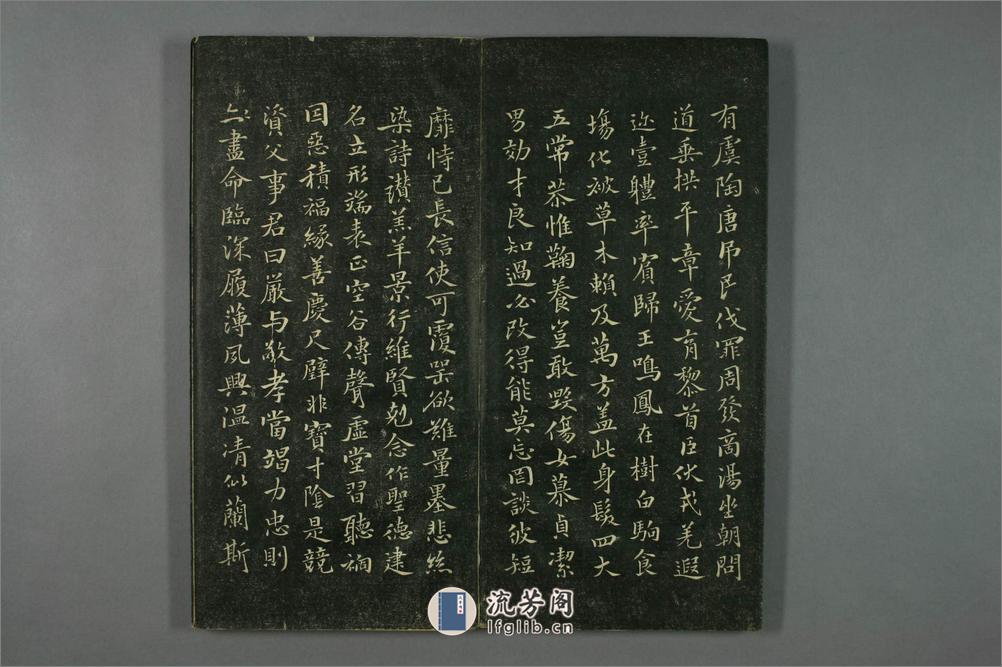 有虞陶唐吊民伐罪周發商湯坐朝問
道垂拱平章愛育黎首臣伏戎羌遐
迩壹體率賓歸王鳴鳳在樹白駒食
場化被草木賴及萬方盖此身髮四大
五常恭惟鞠養豈敢毀傷女慕貞潔
男効才良知過必改得能莫忘罔談彼短
靡恃己長信使可覆器欲難量墨悲絲
染詩讃羔羊景行維賢剋念作聖德建
名立形端表正空谷傳聲虛堂習聽禍
因惡積福緣善慶尺璧非寶寸陰是競
資父事君曰嚴与敬孝當竭力忠則
盡命臨深履薄夙興温凊似蘭斯
流芳阁
lfglib.cn